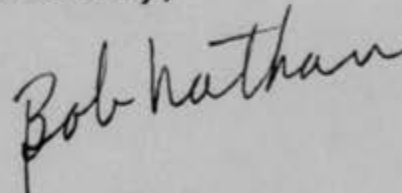 Bob Nathan